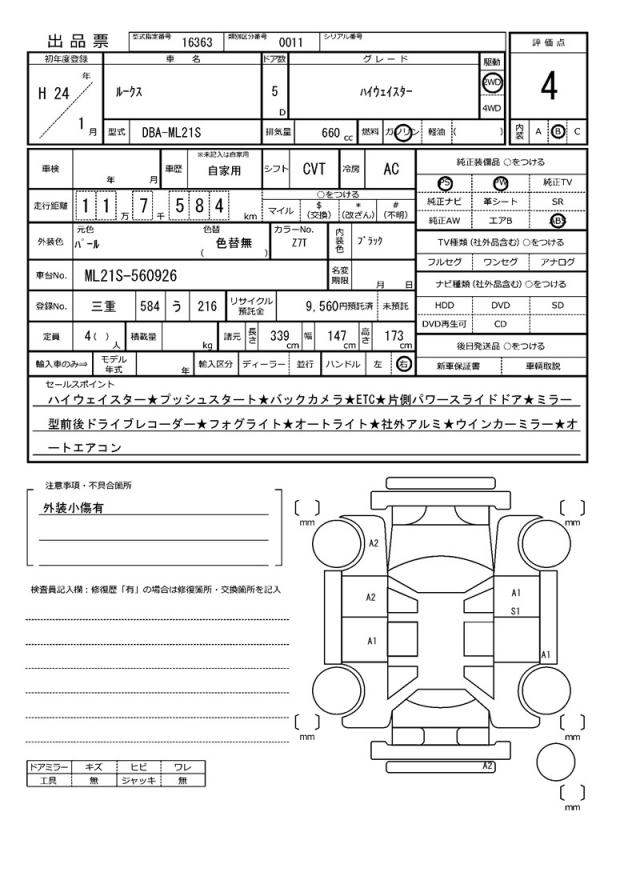 出品票 型式指定番号 16363 類別区分番号 0011 シリアル番号
評価点
初年度登録 車名 ドア数 グレード 駆動
H 24 年 ルークス 5 D ハイウェイスター 2WD 4WD 4
1 月 型式 DBA-ML21S 排気量 660 cc 燃料 ガソリン 軽油 ( ) 内装 A B C
車検 年 月 車歴 ※未記入は自家用 自家用 シフト CVT 冷房 AC
純正装備品 ○をつける
PS PW 純正TV
走行距離 1 1 万 7 千 5 8 4 km ○をつける マイル $(交換) *(改ざん) #(不明)
純正ナビ 革シート SR
純正AW エアB ABS
外装色 元色 パール 色替 色替無 ( ) カラーNo. Z7T 内装色 ブラック
TV種類 (社外品含む) ○をつける
フルセグ ワンセグ アナログ
車台No. ML21S-560926 名変期限 月 日
ナビ種類 (社外品含む) ○をつける
登録No. 三重 584 う 216 リサイクル預託金 9,560円預託済 未預託
HDD DVD SD
DVD再生可 CD
定員 4( ) 人 積載量 kg 諸元 長さ 339 cm 幅 147 cm 高さ 173 cm
後日発送品 ○をつける
輸入車のみ⇒ モデル年式 年 輸入区分 ディーラー 並行 ハンドル 左 右
新車保証書 車輌取説
セールスポイント
ハイウェイスター★プッシュスタート★バックカメラ★ETC★片側パワースライドドア★ミラー
型前後ドライブレコーダー★フォグライト★オートライト★社外アルミ★ウインカーミラー★オ
ートエアコン
注意事項・不具合箇所
外装小傷有
mm mm
A2
検査員記入欄：修復歴「有」の場合は修復箇所・交換箇所を記入
A2 A1
S1
A1 A1
mm mm
A2
ドアミラー キズ ヒビ ワレ
工具 無 ジャッキ 無
mm